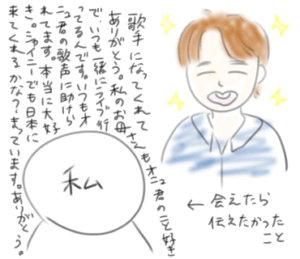 歌手になってくれて
ありがとう。私のお母
さんもオニュ君のこと好き
で、いつも一緒にライブ行
ってるんです。いつもオ
ニュ君の歌声に助けら
れてます。本当に大好
き。シャイニーでも日本に
来てくれるかな?まっています。ありがとう。
私
← 会えたら
伝えたかった
こと